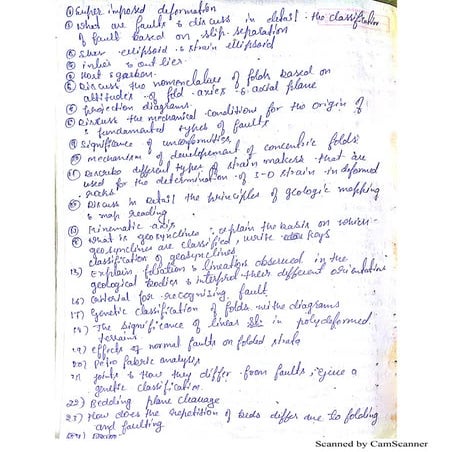 ① Super imposed deformation
② What are faults & discuss in detail the classification
of fault based on slip separation
③ Stress ellipsoid & strain ellipsoid
④ inlies & out lier
⑤ Host & garben
⑥ Discuss the nomenclature of folds based on
attitudes of fold axies & axial plane
⑦ projection diagrams
⑧ Discuss the mechanical conditions for the origin of
& fundamental types of faults
⑨ Significance of unconformities
⑩ mechanism of developement of concentric folds
11) Describe different types of strain makess that are
used for the determination of 1-D strain in deformed
rocks
⑫ Discuss in Detail the principles of geologic mapping
& map reading
⑬ Kinematic axis
⑭ What is geosynclines. explain the basis on which
geosynclines are classified, write keys
classification of geosynclines
15) Explain foliation & lineation observed in the
geological bodies & interpret their different orientation
16) Criterial for recognising fault
17) Genetic classification of folds withe diagrams
18) The significance of linear in polydeformed
terrains
19) effects of normal faults on folded strata
20) Petro fabric analysis
21) joints & How they differ from faults, Give a
genetic classification
22) Bedding plane cleavage
23) How does the repetition of beds differ due to folding
and faulting
Scanned by CamScanner